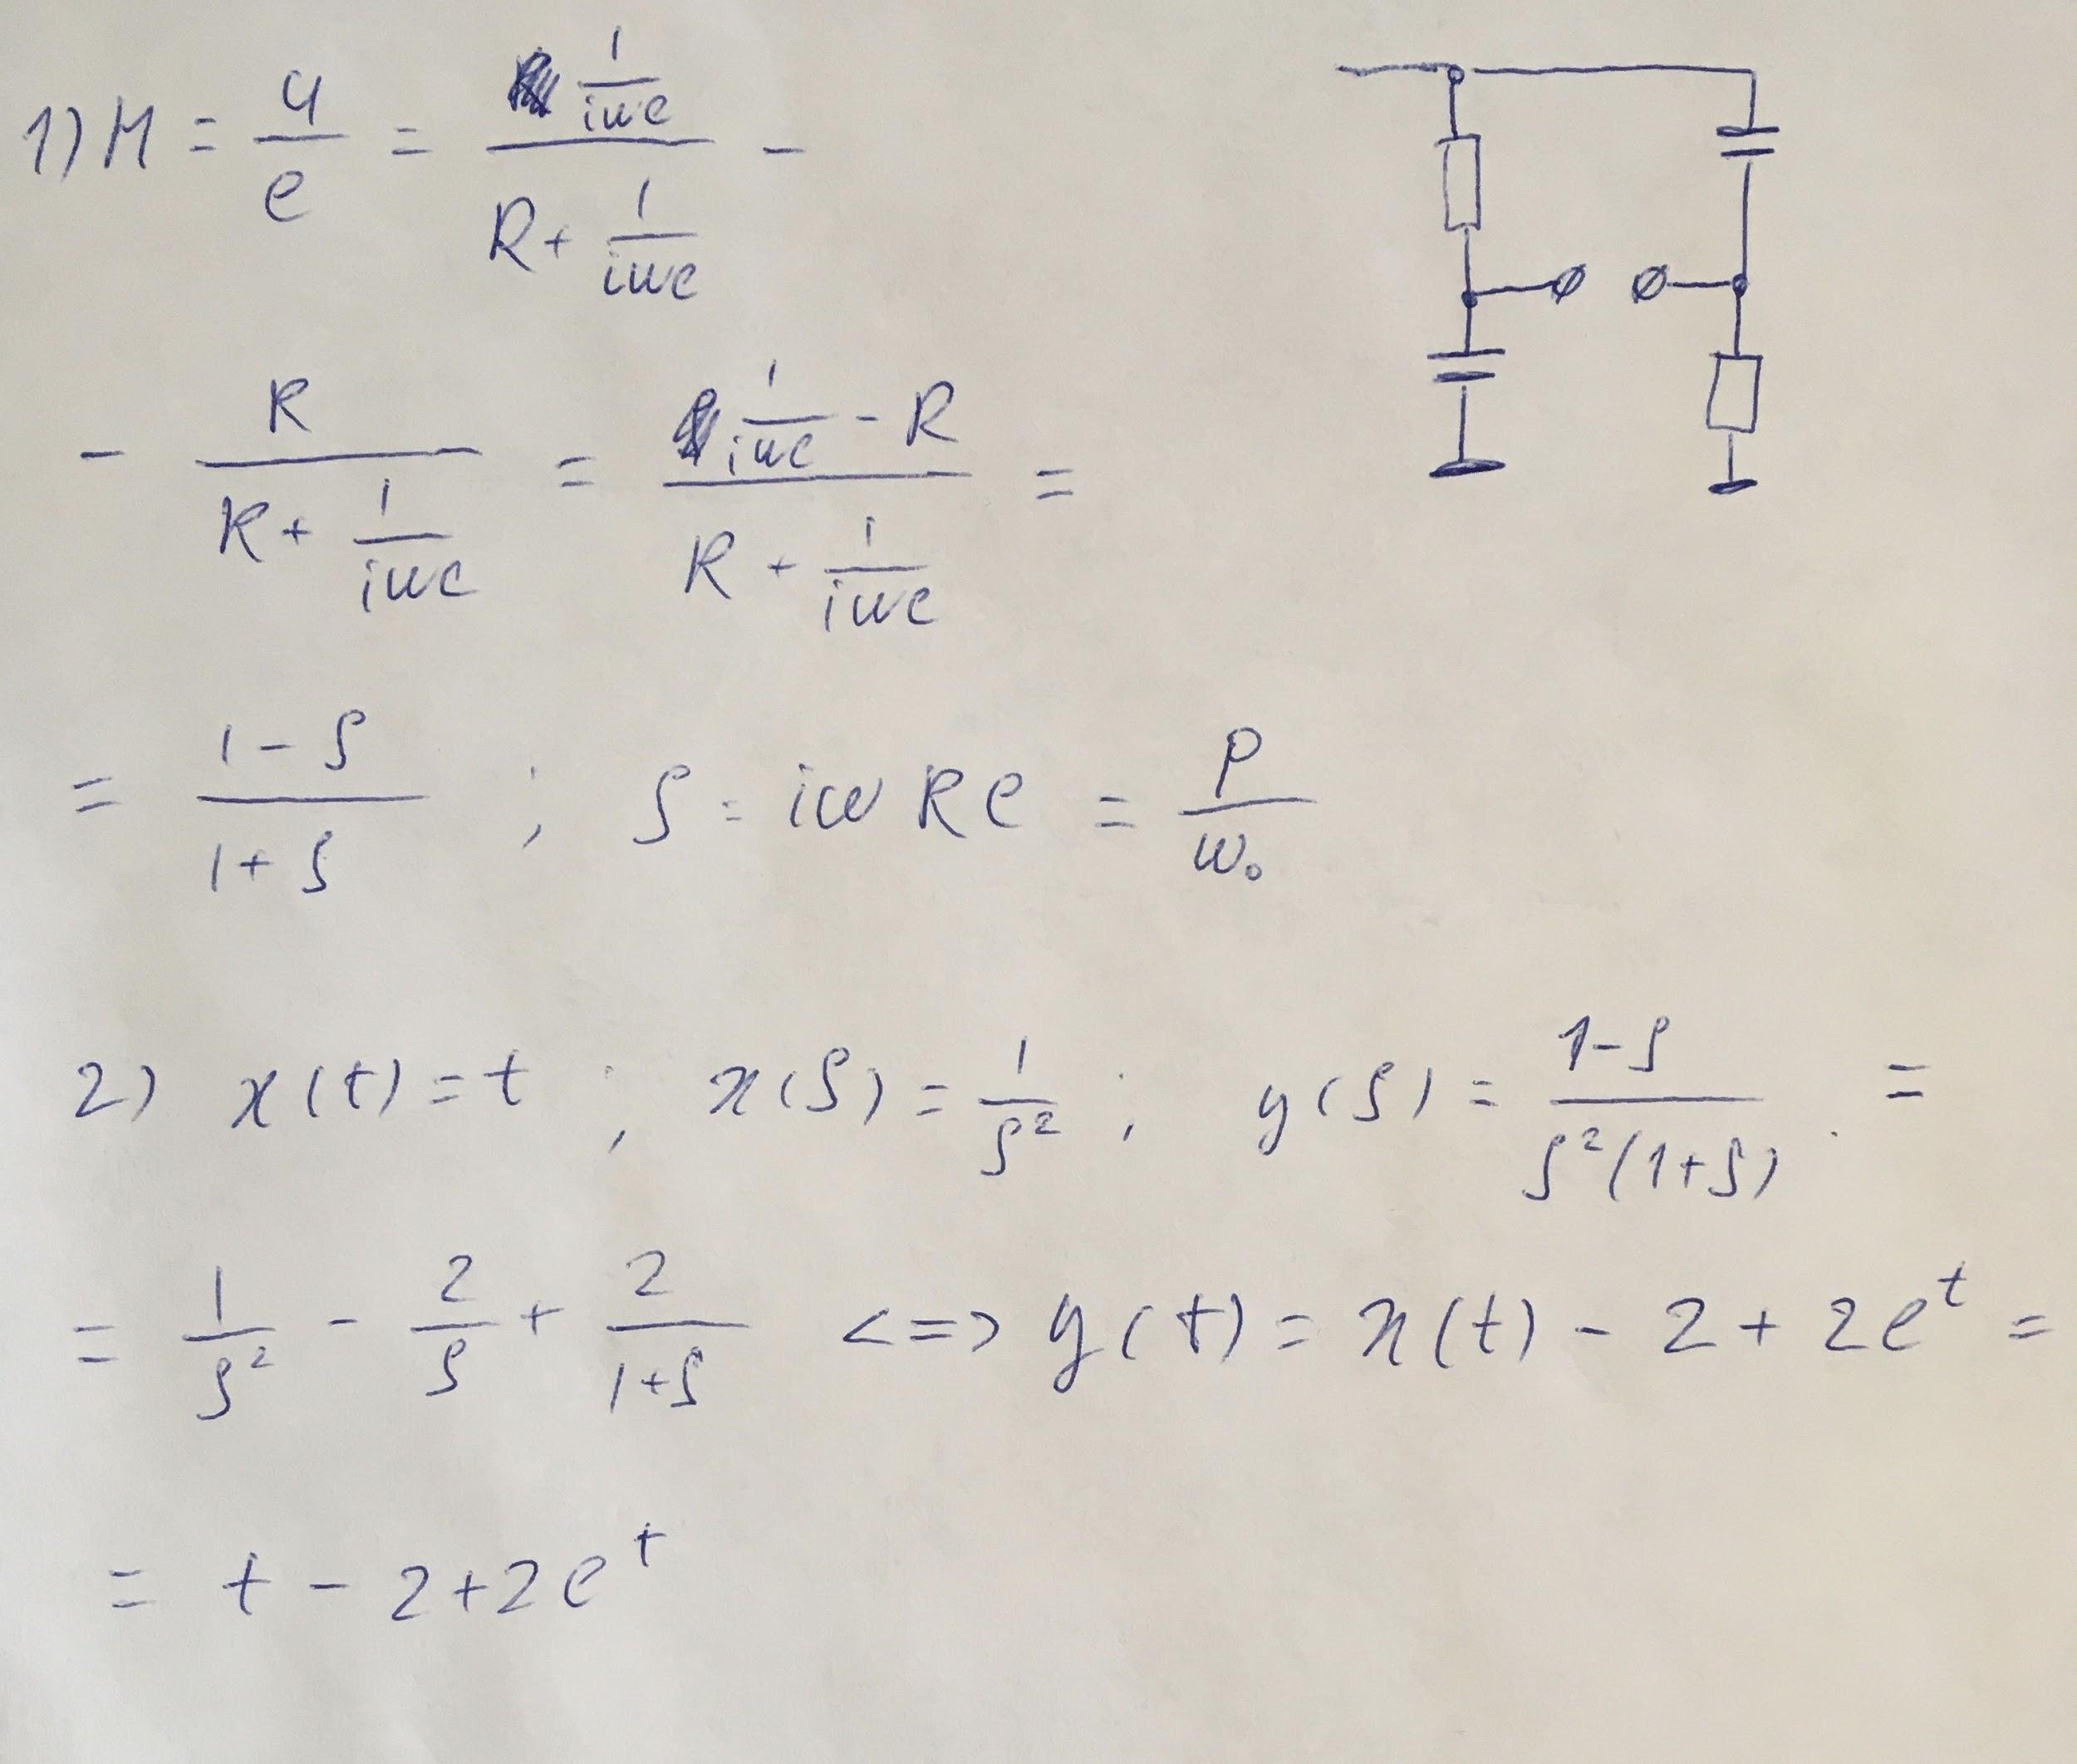 1) H = u/e = (1/(iωc))/(R + 1/(iωc)) -
- R/(R + 1/(iωc)) = (1/(iωc) - R)/(R + 1/(iωc)) =
= (1 - S)/(1 + S) ; S = iωRC = P/ω₀
2) x(t) = t ; x(S) = 1/S² ; y(S) = (1-S)/(S²(1+S)) =
= 1/S² - 2/S + 2/(1+S) <=> y(t) = x(t) - 2 + 2e^t =
= t - 2 + 2e^t